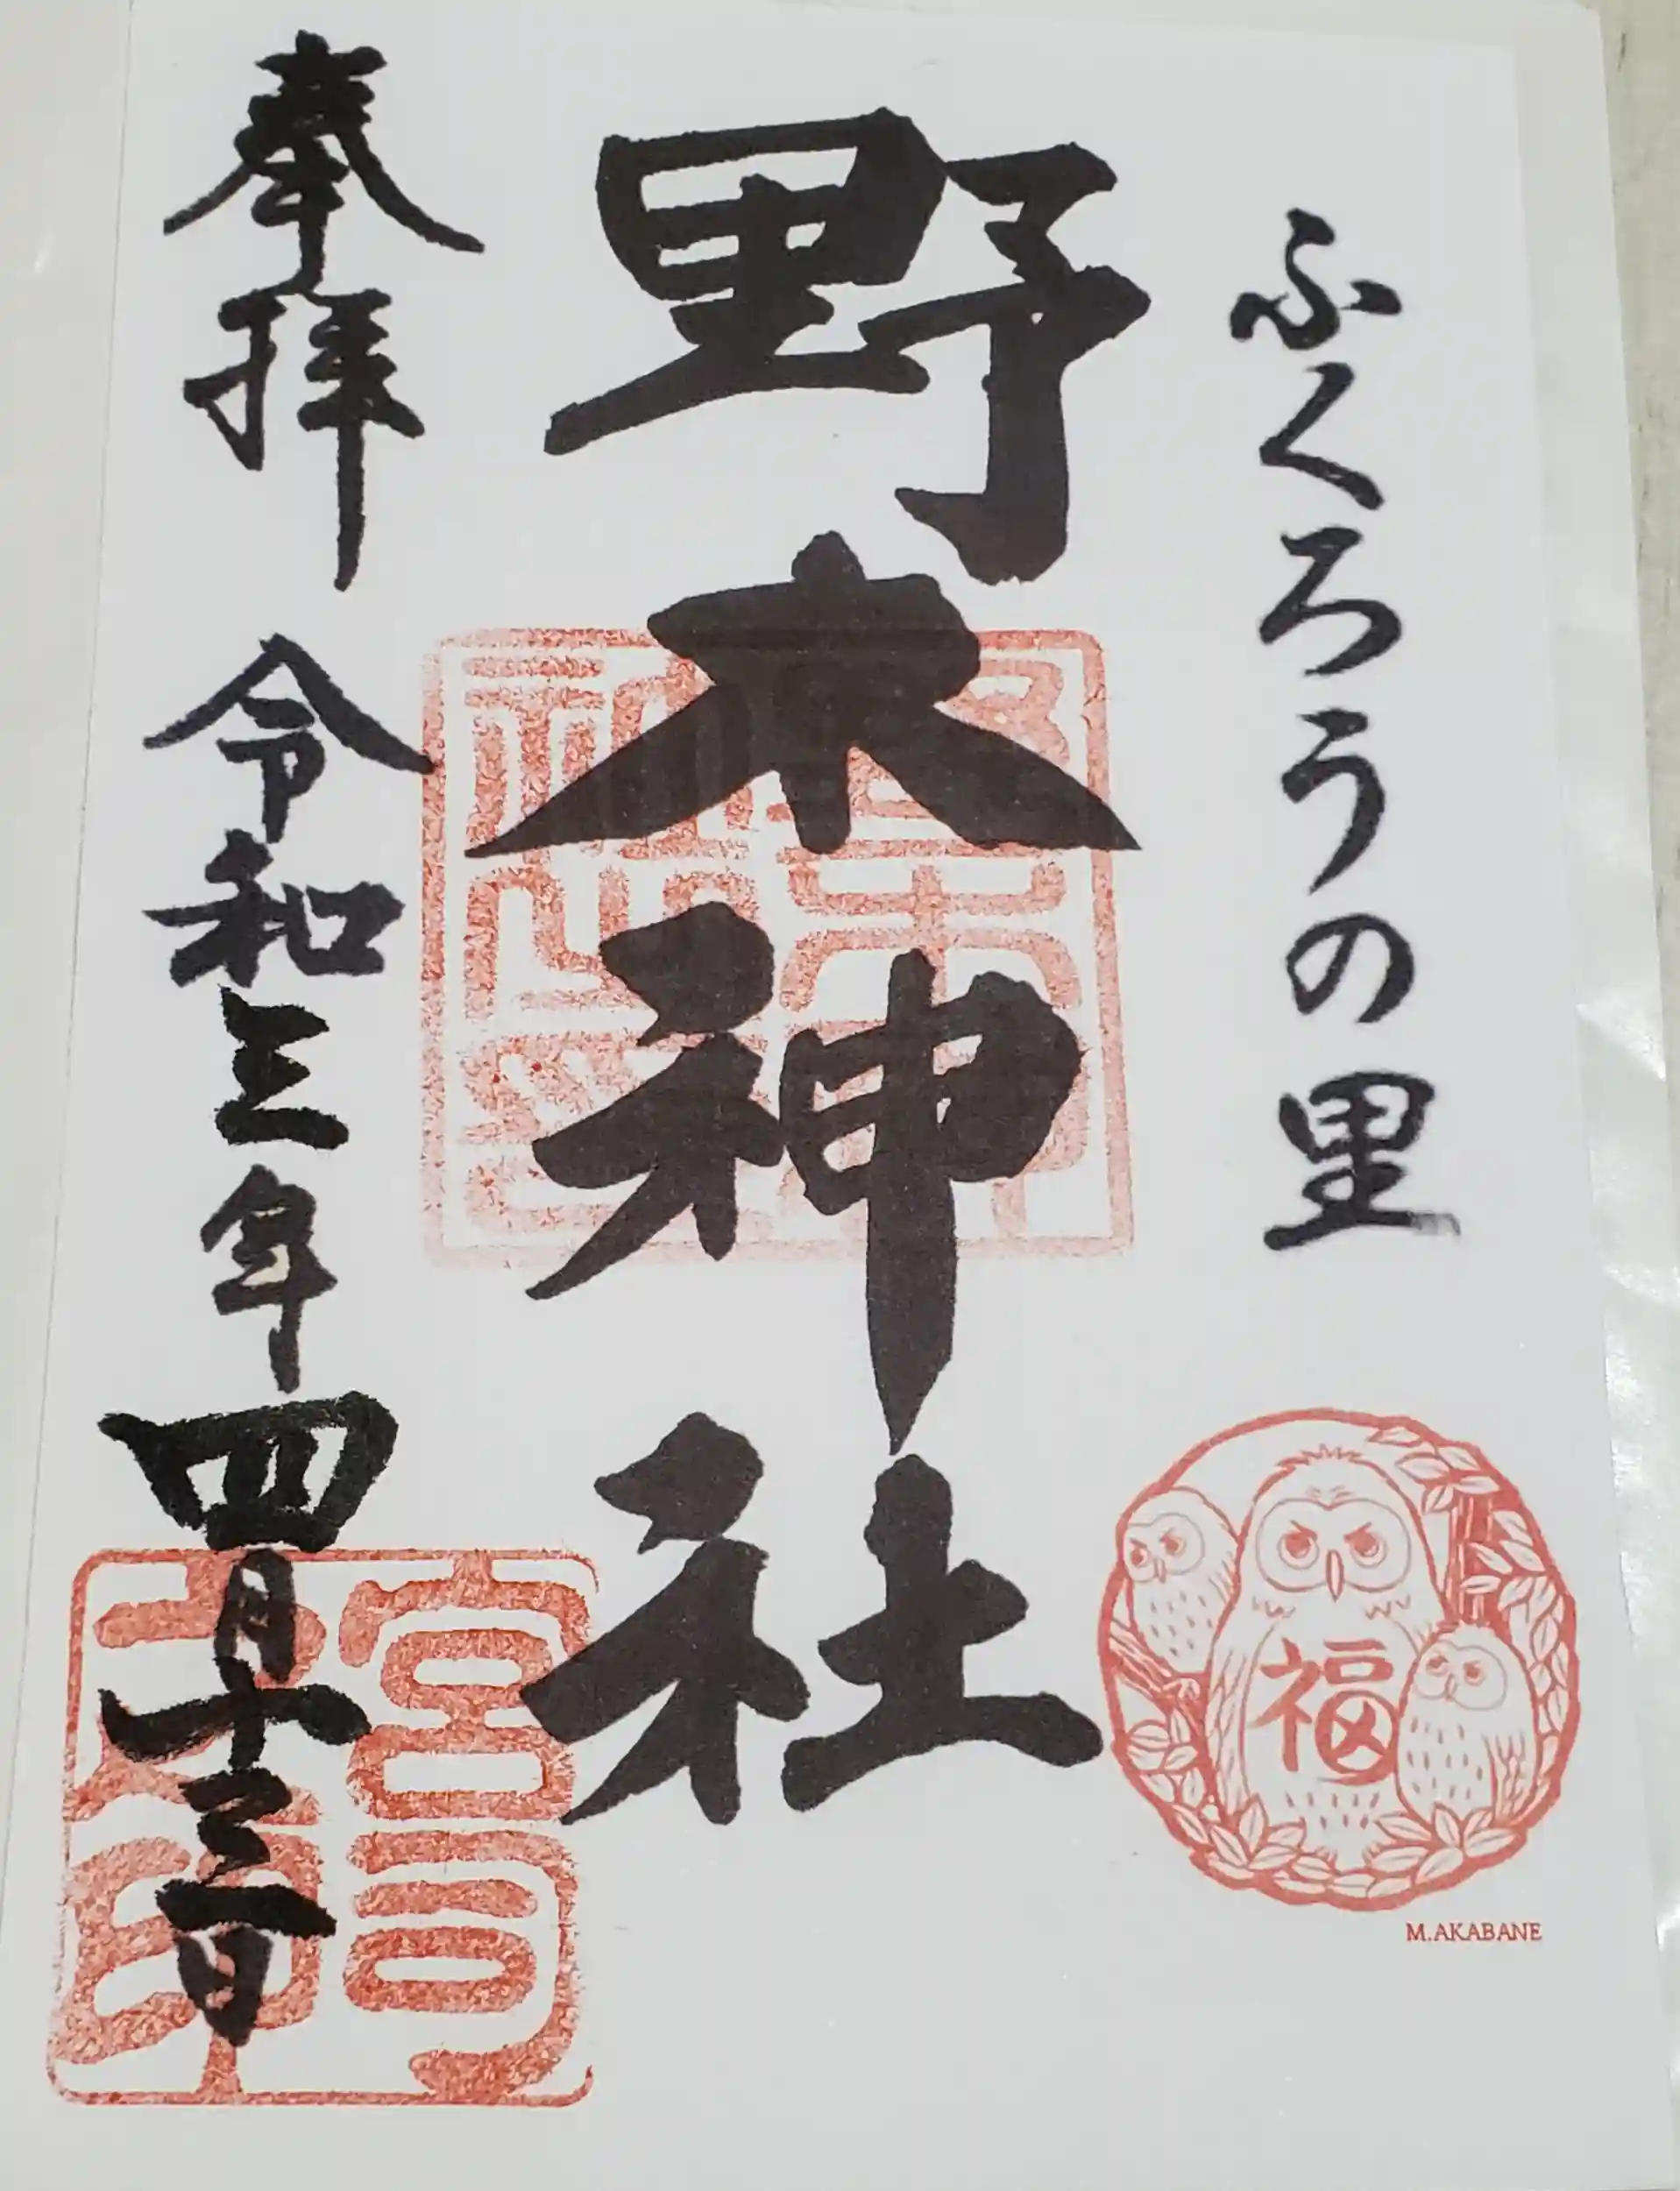 ふくろうの里
福
M.AKABANE
野木神社
奉拝 令和三年四月十三日
宮司之印